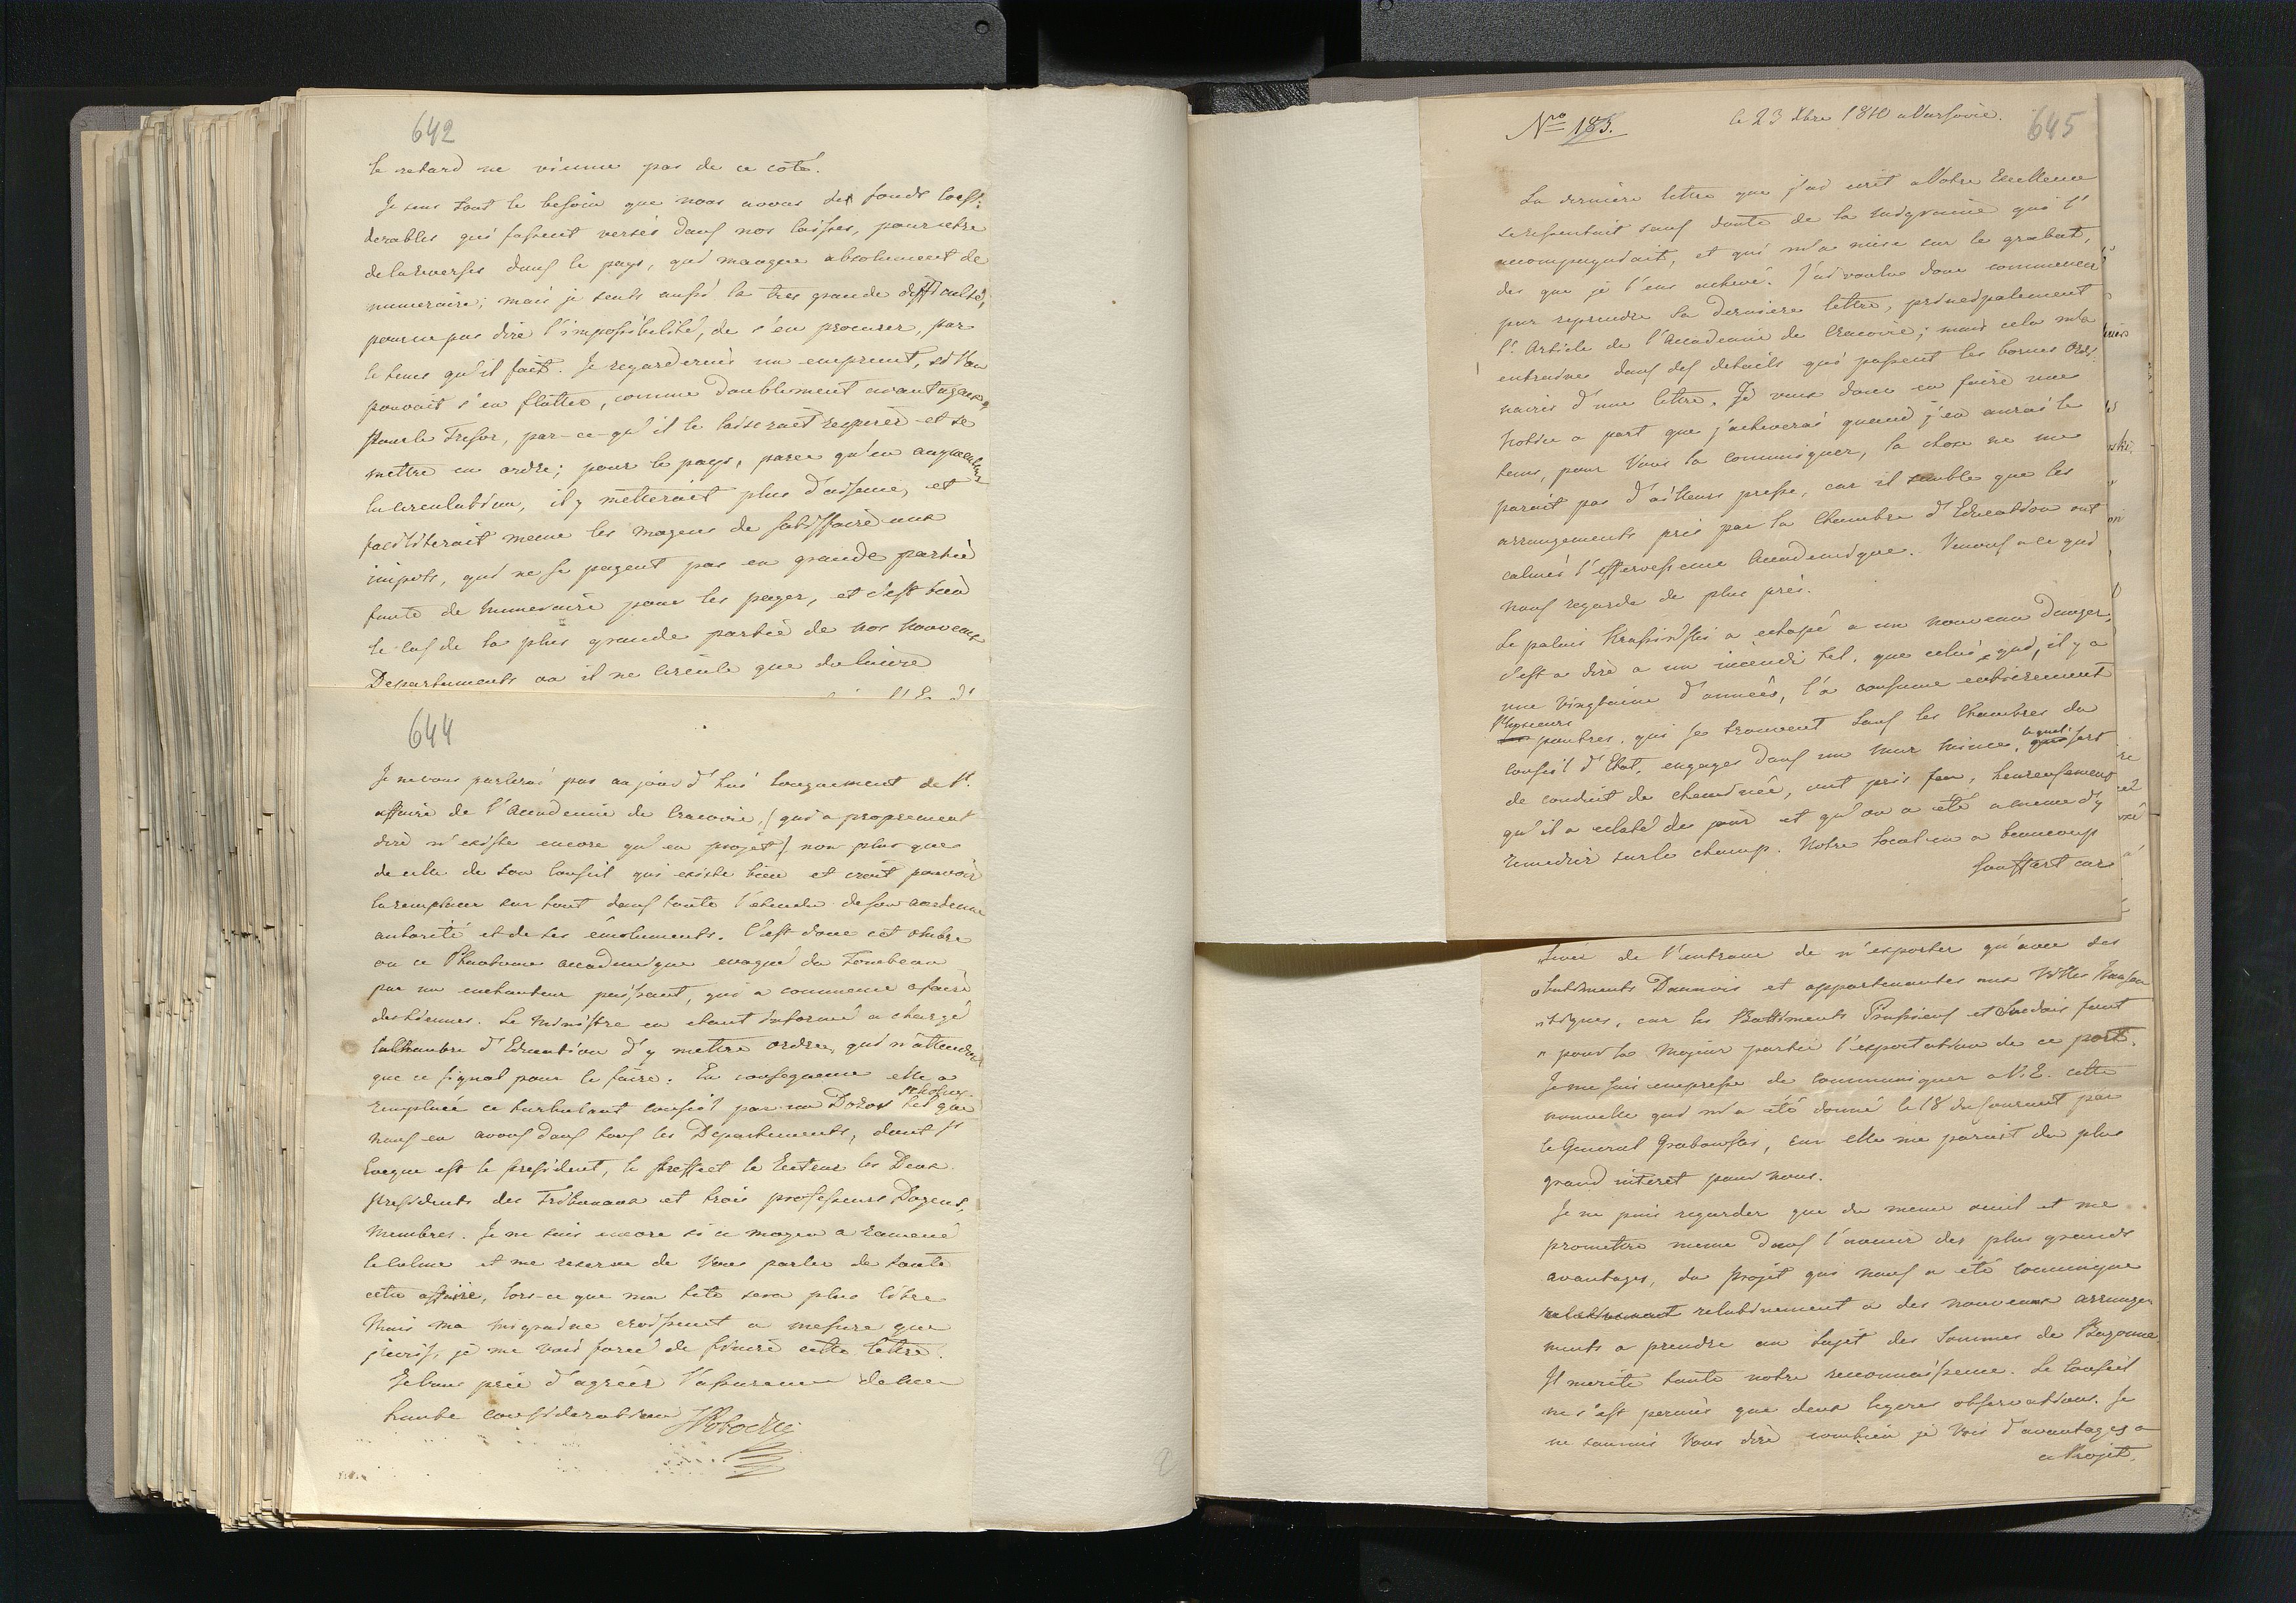 642
le retard ne vienne pas de ce coté.
Je sens tout le besoin que nous avons des fonds consi-
derables qui fussent versés dans nos caisses, pour etre
dela reversés dans le pays, qui manque absolument de
numeraire; mais je sents aussi la tres grande difficulté,
pour ne pas dire l'impossibilité, de s'en procurer, par
le tems qu'il fait. Je regarderois un emprunt, si l'on
pouvoit s'en flatter, comme doublement avantageux,
pour le Tresor, par-ce-qu'il le laisserait respirer et se
mettre en ordre; pour le pays, parce qu'en augmentant
la circulation, il y metterait plus d'aisance, et
faciliterait meme les moyens de satisffaire aux
impots, qui ne se payent pas en grande partie
faute de numeraire pour les payer, et c'est bien
le cas de la plus grande partie de nos nouveaux
Departements ou il ne circule que du cuivre
644
Je ne vous parlerai pas aujourd'hui longuement de l'
affaire de l'Academie de Cracovie, (qui a proprement
dire n'existe encore qu'en projet) non plus que
de celle de son Conseil qui existe bien et croit pouvoir
la remplacer sur tout dans toute l'etendue de son ancienne
autorité et de ses émoluments. C'est donc cet ombre
ou ce Phantome academique evoqué du Tombeau
par un enchanteur puissant, qui a commencé a faire
des siennes. Le Ministre en etant informé a chargé
la Chambre d'Education d'y mettre ordre, qui n'attendoit
que ce signal pour le faire. En consequence elle a
remplacé ce turbulant conseil par un Dozor szkolny tel que
nous en avons dans tous les Departements, dont l'
Eveque est le president, le Preffect le Recteur les Deux
Presidents des Tribunaux et trois professeurs Doyens,
membres. Je ne sais encore si ce moyen a ramené
le calme et me reserve de Vous parler de toute
cette affaire, lors-ce que ma tete sera plus libre
Mais ma migraine croissant a mesure que
j'ecris, je me vois forcé de finir cette lettre.
Je Vous prie d'agréer l'assurance de ma
haute consideration
SPotocki
2
Nro 183.
le 23 Xbre 1810 a Varsovie.
645
La derniere lettre que j'ai ecrit a Votre Excellence
se ressentait sans doute de la migraine qui l'
accompagnait, et qui m'a mise sur le grabat,
des que je l'eus achevé. J'ai voulu donc commencer
par reprendre la derniere lettre, principalement
l'Article de l'Academie de Cracovie; mais cela m'a
entrainé dans des details qui passent les bornes ordi-
naires d'une lettre. Je veux donc en faire une
Notice a part que j'acheverai quand j'en aurai le
tems, pour Vous la communiquer, la chose ne me
parait pas d'ailleurs pressé, car il semble que les
arrangements pris par la Chambre d'Education ont
calmés l'effervescence Academique. Venons a ce qui
nous regarde de plus près.
Le palais Krasinski a echapé a un nouveau danger,
c'est a dire a un incendie tel, que celui, qui, il y a
une vingtaine d'années, l'a consumé entierement
Plusieurs poutres, qui se trouvent sous les Chambres du
Conseil d'Etat, engagés dans un mur mince, lequel sert
de conduit de cheminée, ont pris feu, heureusement
qu'il a eclaté de jour et qu'on a eté a meme d'y
remedier sur le champ. Notre local en a beaucoup
souffert car
de l'entrave de n'exporter qu'avec des
batiments Danois et appartenantes aux Villes Hansea-
"tiques, car les Battiments Prussiens et Suedois font
" pour la majeur partie l'exportation de ce port.
Je me suis empressé de communiquer a V. E. cette
nouvelle qui m'a été donné le 18 du Courant par
le General Grabowski, car elle me parait du plus
grand interet pour nous.
Je ne puis regarder que du meme oeuil et me
promettre meme dans l'avenir des plus grands
avantages, du projet qui nous a été communiqué
relativement a des nouveaux arrange-
ments a prendre au sujet des Sommes de Bayonne.
Il merite toute notre reconnaissance. Le Conseil
ne s'est permis que deux legeres observations. Je
ne saurais Vous dire combien je vois d'avantages a
ce Projet,